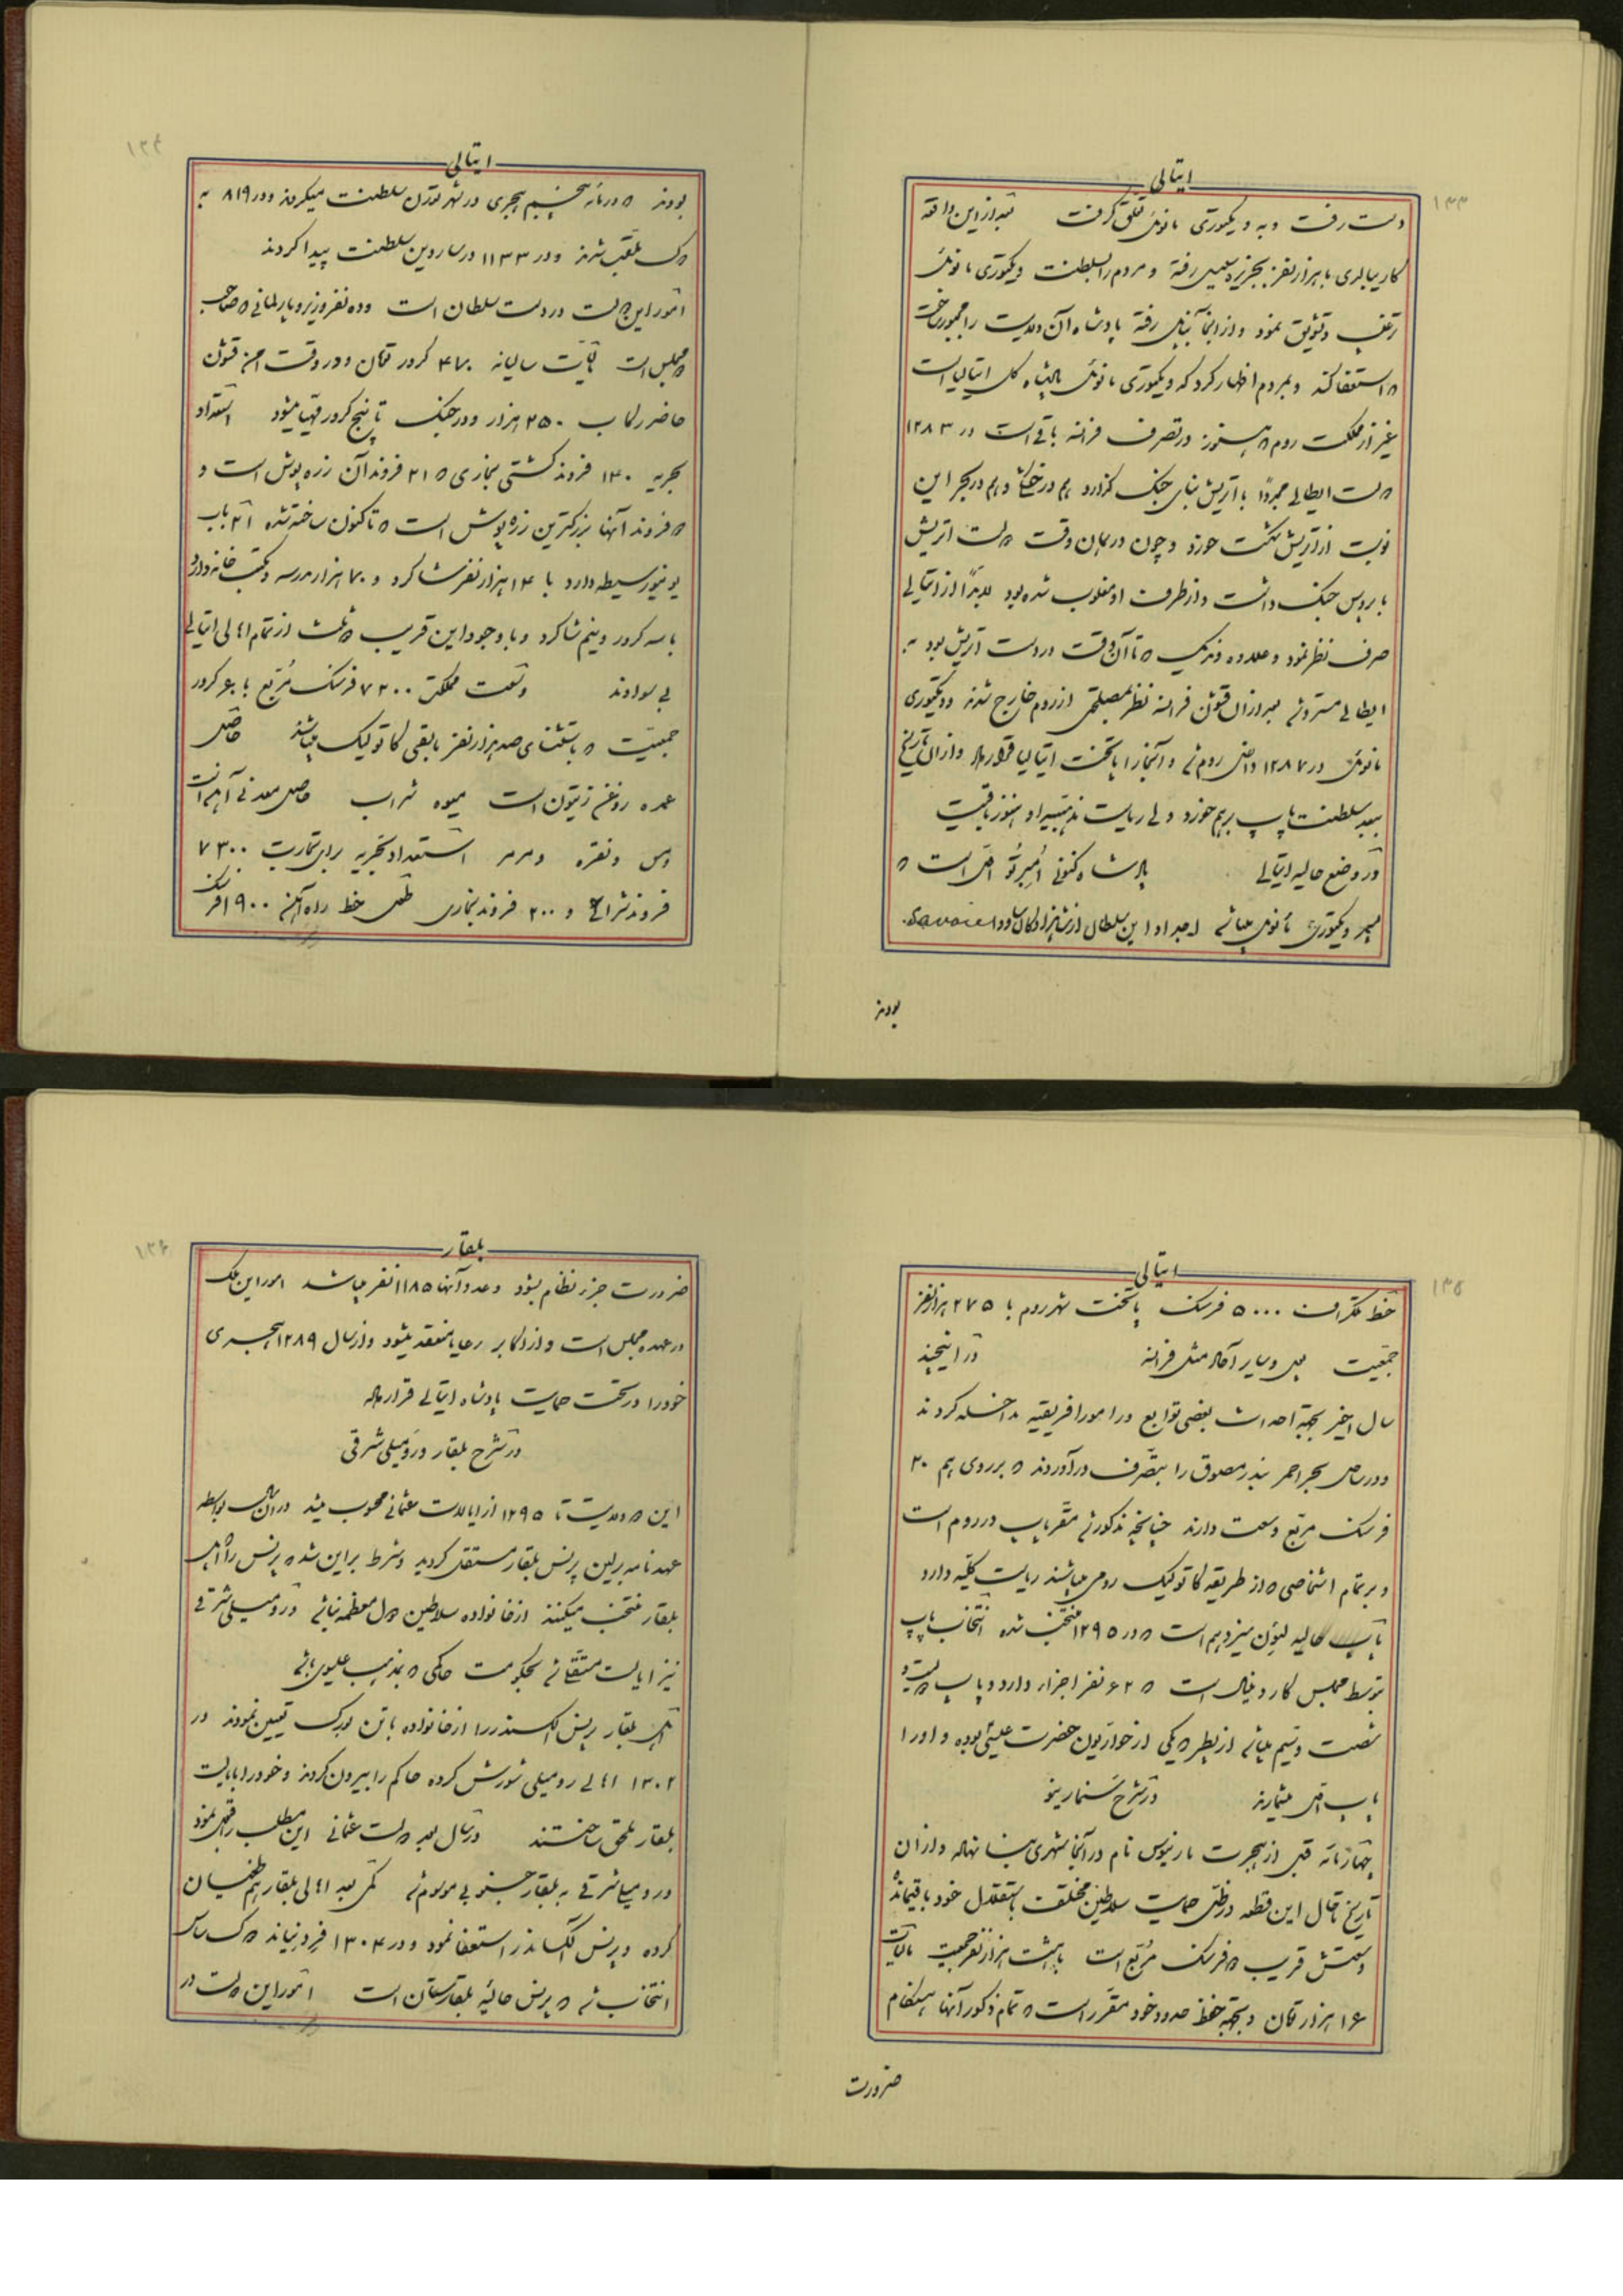 ۱۳۳
ایتالی
دست رفت و به ویکتوری مانوئل تعلق گرفت بعد از این واقعه
کاریبالدی با هزار نفر بجزیره سیسیل رفته و مردم را بسلطنت ویکتوری مانوئل
ترغیب و تشویق نمود و از آنجا بناپل رفته پادشاه آن ولایت را مجبور ساخت
که استعفا کند و بمردم اظهار کرد که ویکتوری مانوئل پادشاه کل ایتالیا است
غیر از مملکت روم که هنوز در تصرف فرانسه باقی است در ۱۲۸۳
دولت ایطالی مجدداً با اتریش بنای جنگ گذارد هم در خشکی و هم در بحر این
نوبت از اتریش شکست خورد و چون در همان وقت دولت اتریش
با پروس جنگ داشت و از طرف او مغلوب شده بود لابداً از ایتالی
صرف نظر نمود و علاوه ونیک که تا آن وقت در دست اتریش بود به
ایطالی مسترد شد بعد از آن قشون فرانسه نظر بمصلحتی از روم خارج شدند و ویکتوری
مانوئل در ۱۲۸۷ داخل روم شد و آنجا را پایتخت ایتالیا قرار داد و از آن تاریخ
ببعد سلطنت پاپ برهم خورد ولی ریاست مذهبیه او هنوز باقیست
در وضع حالیه ایتالی پادشاه کنونی اُمبِرتُو اول است که
پسر ویکتوری مانوئل میباشد اجداد این سلطان از شاهزادگان ساووا Savoie
بودند
۱۳۴
ایتالی
بودند که در مائه پنجم هجری در شهر تورن سلطنت میکردند و در ۸۱۹ به
دوک ملقب شدند و در ۱۱۳۳ در ساردین سلطنت پیدا کردند
امور این دولت در دست سلطان است و ده نفر وزیر و پارلمانی که صاحب
دو مجلس است مالیات سالیانه ۴۷۰ کرور تومان و در وقت امن قشون
حاضر رکاب ۲۵۰ هزار و در جنگ تا پنج کرور مهیا میشود استعداد
بحریه ۱۳۰ فروند کشتی بخاری که ۲۱ فروند آن زره پوش است و
دو فروند آنها بزرگترین زره پوش است که تاکنون ساخته شده ۲۱ باب
یونیورسیطه دارد با ۱۴ هزار نفر شاگرد و ۷۰ هزار مدرسه و مکتب خانه دارد
با سه کرور و نیم شاگرد و با وجود این قریب دو ثلث از تمام اهالی ایتالی
بی سوادند وسعت مملکت ۷۲۰۰ فرسنگ مربع با ۶۰ کرور
جمعیت که باستثنای صد هزار نفر مابقی کاتولیک میباشند حاصل
عمده روغن زیتون است میوه شراب حاصل معدنی آهن است
و مس و نقره و مرمر استعداد بحریه برای تجارت ۷۳۰۰
فروند شراعی و ۲۰۰ فروند بخاری طول خط راه آهن ۱۹۰۰ فرسنگ
۱۳۵
ایتالی
خط تلگراف ۵۰۰۰ فرسنگ پایتخت شهر روم با ۲۷۵ هزار نفر
جمعیت پول و سایر آحاد مثل فرانسه در این چند
سال اخیر بجهة احداث بعضی توابع در امور افریقیه مداخله کردند
و در ساحل بحر احمر بندر مصوق را بتصرف درآوردند که بر روی هم ۳۰
فرسنگ مربع وسعت دارند چنانچه مذکور شد مقر پاپ در روم است
و بر تمام اشخاصی که از طریقه کاتولیک رومی میباشند ریاست کلیه دارد
پاپ حالیه لئون سیزدهم است که در ۱۲۹۵ منتخب شده انتخاب پاپ
توسط مجلس کاردینال است که ۶۲ نفر اجزاء دارد و پاپ دویست و
شصت و سیم میباشد از پطر که یکی از حواریون حضرت عیسی بوده و او را
پاپ اول میشمارند در شرح سنمارینو
چهار مائه قبل از هجرت مارینوس نام در آنجا شهری بنا نهاد و از آن
تاریخ تا حال این قطعه در ظل حمایت سلاطین مختلفه باستقلال خود باقیمانده
وسعتش قریب دو فرسنگ مربع است با هشت هزار نفر جمعیت مالیات
۱۶ هزار تومان و بجهة حفظ حدود خود مقرر است که تمام ذکور آنها هنگام
ضرورت
۱۳۶
بلغار
ضرورت جزء نظام بشود و عدد آنها ۱۱۸۵ نفر میباشد امور این ملک
در عهده مجلس است و از اکابر رعایا منعقد میشود و از سال ۱۲۸۹ هجری
خود را در تحت حمایت پادشاه ایتالی قرار داده
در شرح بلغار و رومیلی شرقی
این دو ولایت تا ۱۲۹۵ از ایالات عثمانی محسوب میشد در آن سال بواسطه
عهدنامه برلین پرنس بلغار مستقل گردید و شرط بر این شد که پرنس را اهل
بلغار منتخب میکنند از خانواده سلاطین دول معظمه نباشد و رومیلی شرقی
نیز ایالت مستقلی شد بحکومت حاکمی که بمذهب عیسوی باشد
اهل بلغار پرنس الکسندر را از خانواده باتن بورگ تعیین نمودند در
۱۳۰۲ اهالی رومیلی شورش کرده حاکم را بیرون کردند و خود را بایالت
بلغار ملحق ساختند در سال بعد دولت عثمانی این مطلب را قبول نمود
و رومیلی شرقی به بلغار جنوبی موسوم شد کمی بعد اهالی بلغار هم طغیان
کرده و پرنس الکساندر استعفا نمود و در ۱۳۰۴ فردیناند دو ساکس
انتخاب شد که پرنس حالیه بلغارستان است امور این دولت در